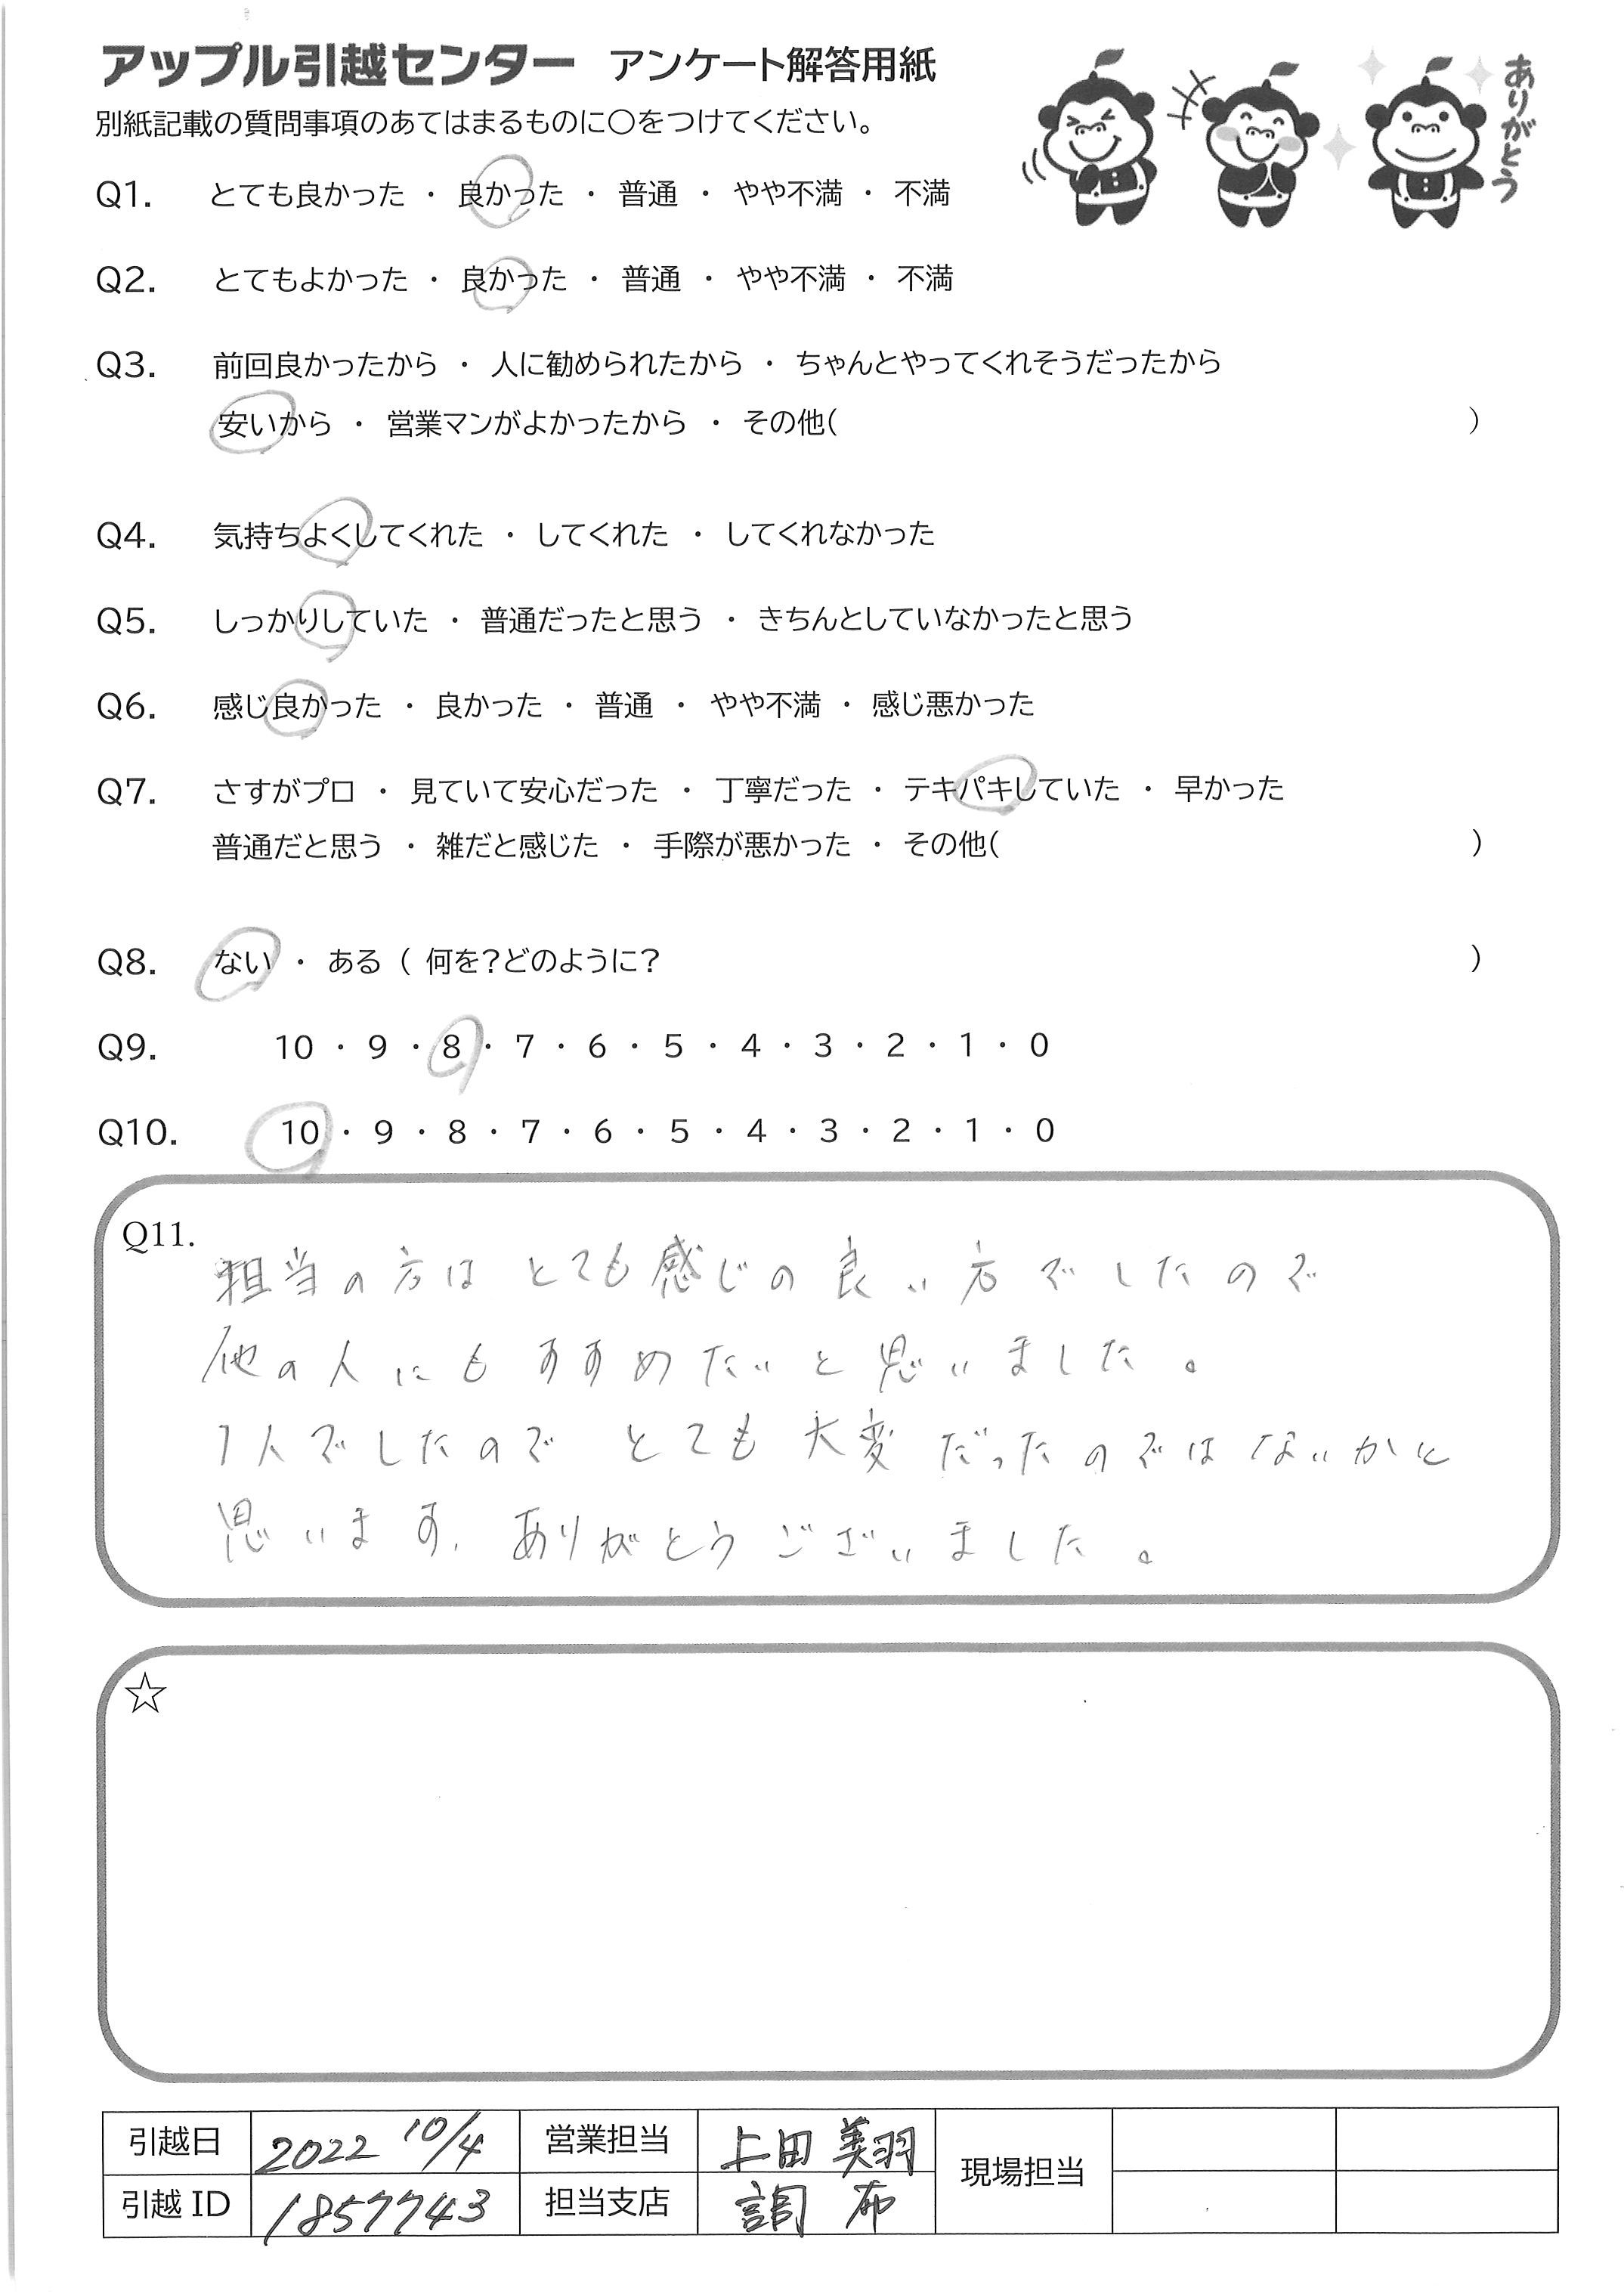 アップル引越センター アンケート解答用紙
別紙記載の質問事項のあてはまるものに○をつけてください。
ありがとう
Q1. とても良かった ・ 良かった ・ 普通 ・ やや不満 ・ 不満
Q2. とてもよかった ・ 良かった ・ 普通 ・ やや不満 ・ 不満
Q3. 前回良かったから ・ 人に勧められたから ・ ちゃんとやってくれそうだったから
安いから ・ 営業マンがよかったから ・ その他( )
Q4. 気持ちよくしてくれた ・ してくれた ・ してくれなかった
Q5. しっかりしていた ・ 普通だったと思う ・ きちんとしていなかったと思う
Q6. 感じ良かった ・ 良かった ・ 普通 ・ やや不満 ・ 感じ悪かった
Q7. さすがプロ ・ 見ていて安心だった ・ 丁寧だった ・ テキパキしていた ・ 早かった
普通だと思う ・ 雑だと感じた ・ 手際が悪かった ・ その他( )
Q8. ない ・ ある ( 何を?どのように? )
Q9. 10 ・ 9 ・ 8 ・ 7 ・ 6 ・ 5 ・ 4 ・ 3 ・ 2 ・ 1 ・ 0
Q10. 10 ・ 9 ・ 8 ・ 7 ・ 6 ・ 5 ・ 4 ・ 3 ・ 2 ・ 1 ・ 0
Q11.
担当の方はとても感じの良い方でしたので
他の人にもすすめたいと思いました。
1人でしたのでとても大変だったのではないかと
思います、ありがとうございました。
☆
引越日 2022 10/4 営業担当 上田 美羽 現場担当
引越ID 1857743 担当支店 調布